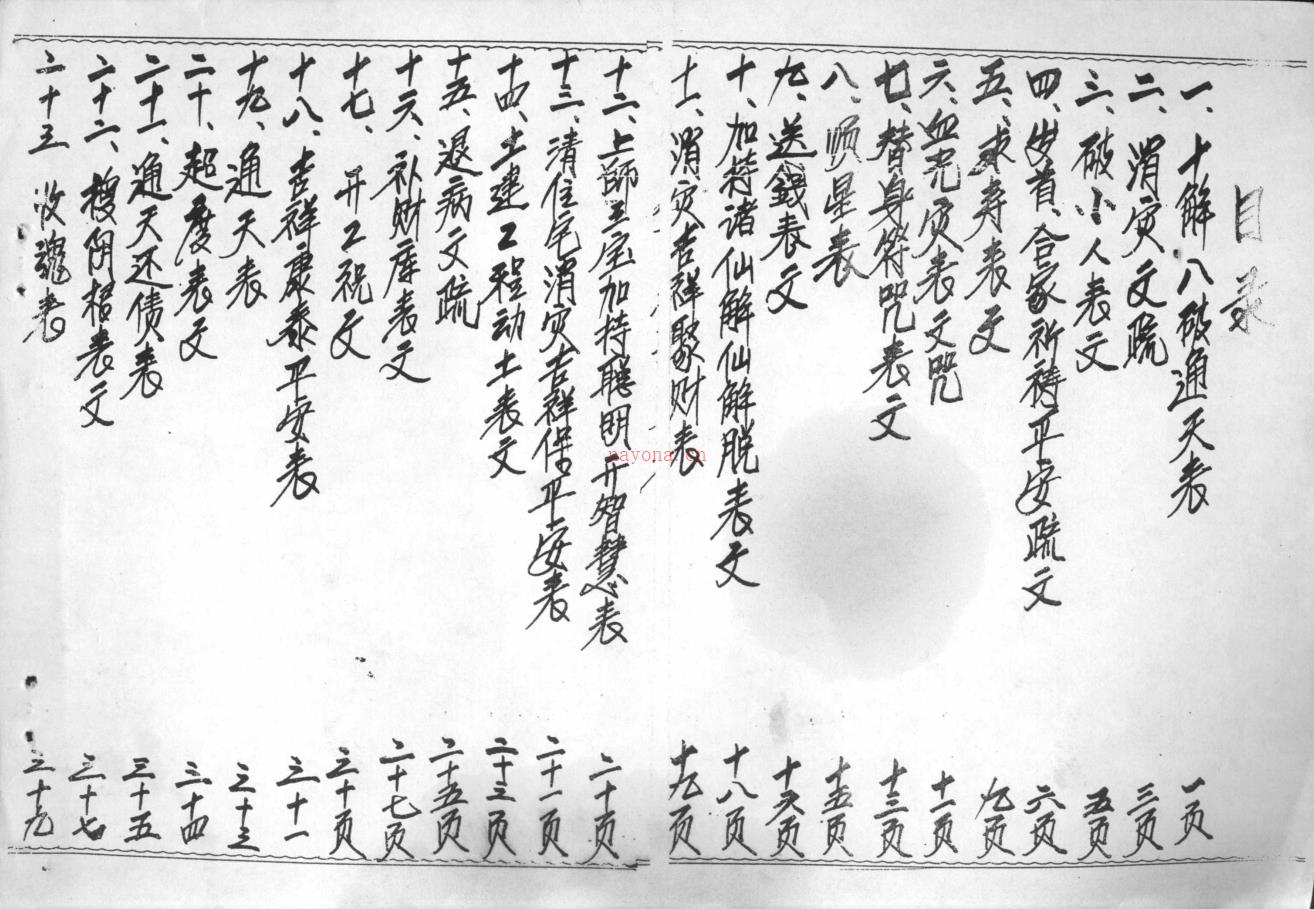 目录
一、十解八破通天表 一页
二、消灾文疏 三页
三、破小人表文 五页
四、岁首、合家祈祷平安疏文 六页
五、求寿表文 九页
六、血光灾表文咒 十一页
七、替身符咒表文 十三页
八、顺星表 十五页
九、送钱表文 十六页
十、加持诸仙解仙解脱表文 十八页
十一、消灾吉祥聚财表 十九页
十二、上師三宝加持聪明开智慧表 二十页
十三、清住宅消灾吉祥保平安表 二十一页
十四、土建工程动土表文 二十三页
十五、退病文疏 二十五页
十六、补财库表文 二十七页
十七、开工祝文 三十页
十八、吉祥康泰平安表 三十一
十九、通天表 三十三
二十、超度表文 三十四
二十一、通天还债表 三十五
二十二、拨阴楛表文 三十七
二十三 收魂表 三十九
nayona.cn